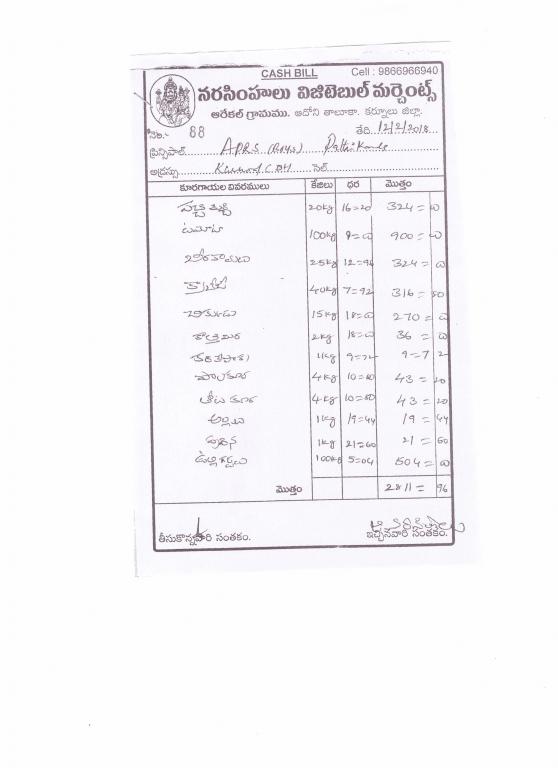 CASH BILL Cell : 9866966940
నరసింహులు విజిటెబుల్ మర్చెంట్స్
ఆరేకల్ గ్రామము. ఆదోని తాలూకా. కర్నూలు జిల్లా.
నెం. 88 తేది. 12/2/2018
ప్రిన్సిపాల్ APRS (Boys)
అడ్రస్సు సెల్
కూరగాయల వివరములు కేజీలు ధర మొత్తం
పచ్చిమిర్చి 20kg 16=20 324=00
టమోటా 100kg 9=00 900=00
బీరకాయలు 25kg 12=96 324=00
క్యారేట్ 40kg 7=92 316=80
15kg 18=00 270=00
కొత్తిమీర 2kg 18=00 36=00
1kg 9=72 9=72
పాలకూర 4kg 10=80 43=20
తోటకూర 4kg 10=80 43=20
అల్లం 1kg 19=44 19=44
పుదీన 1kg 21=60 21=60
ఉల్లిగడ్డలు 100kg 5=04 504=00
మొత్తం 2811=96
తీసుకొన్నవారి సంతకం. ఇచ్చినవారి సంతకం.